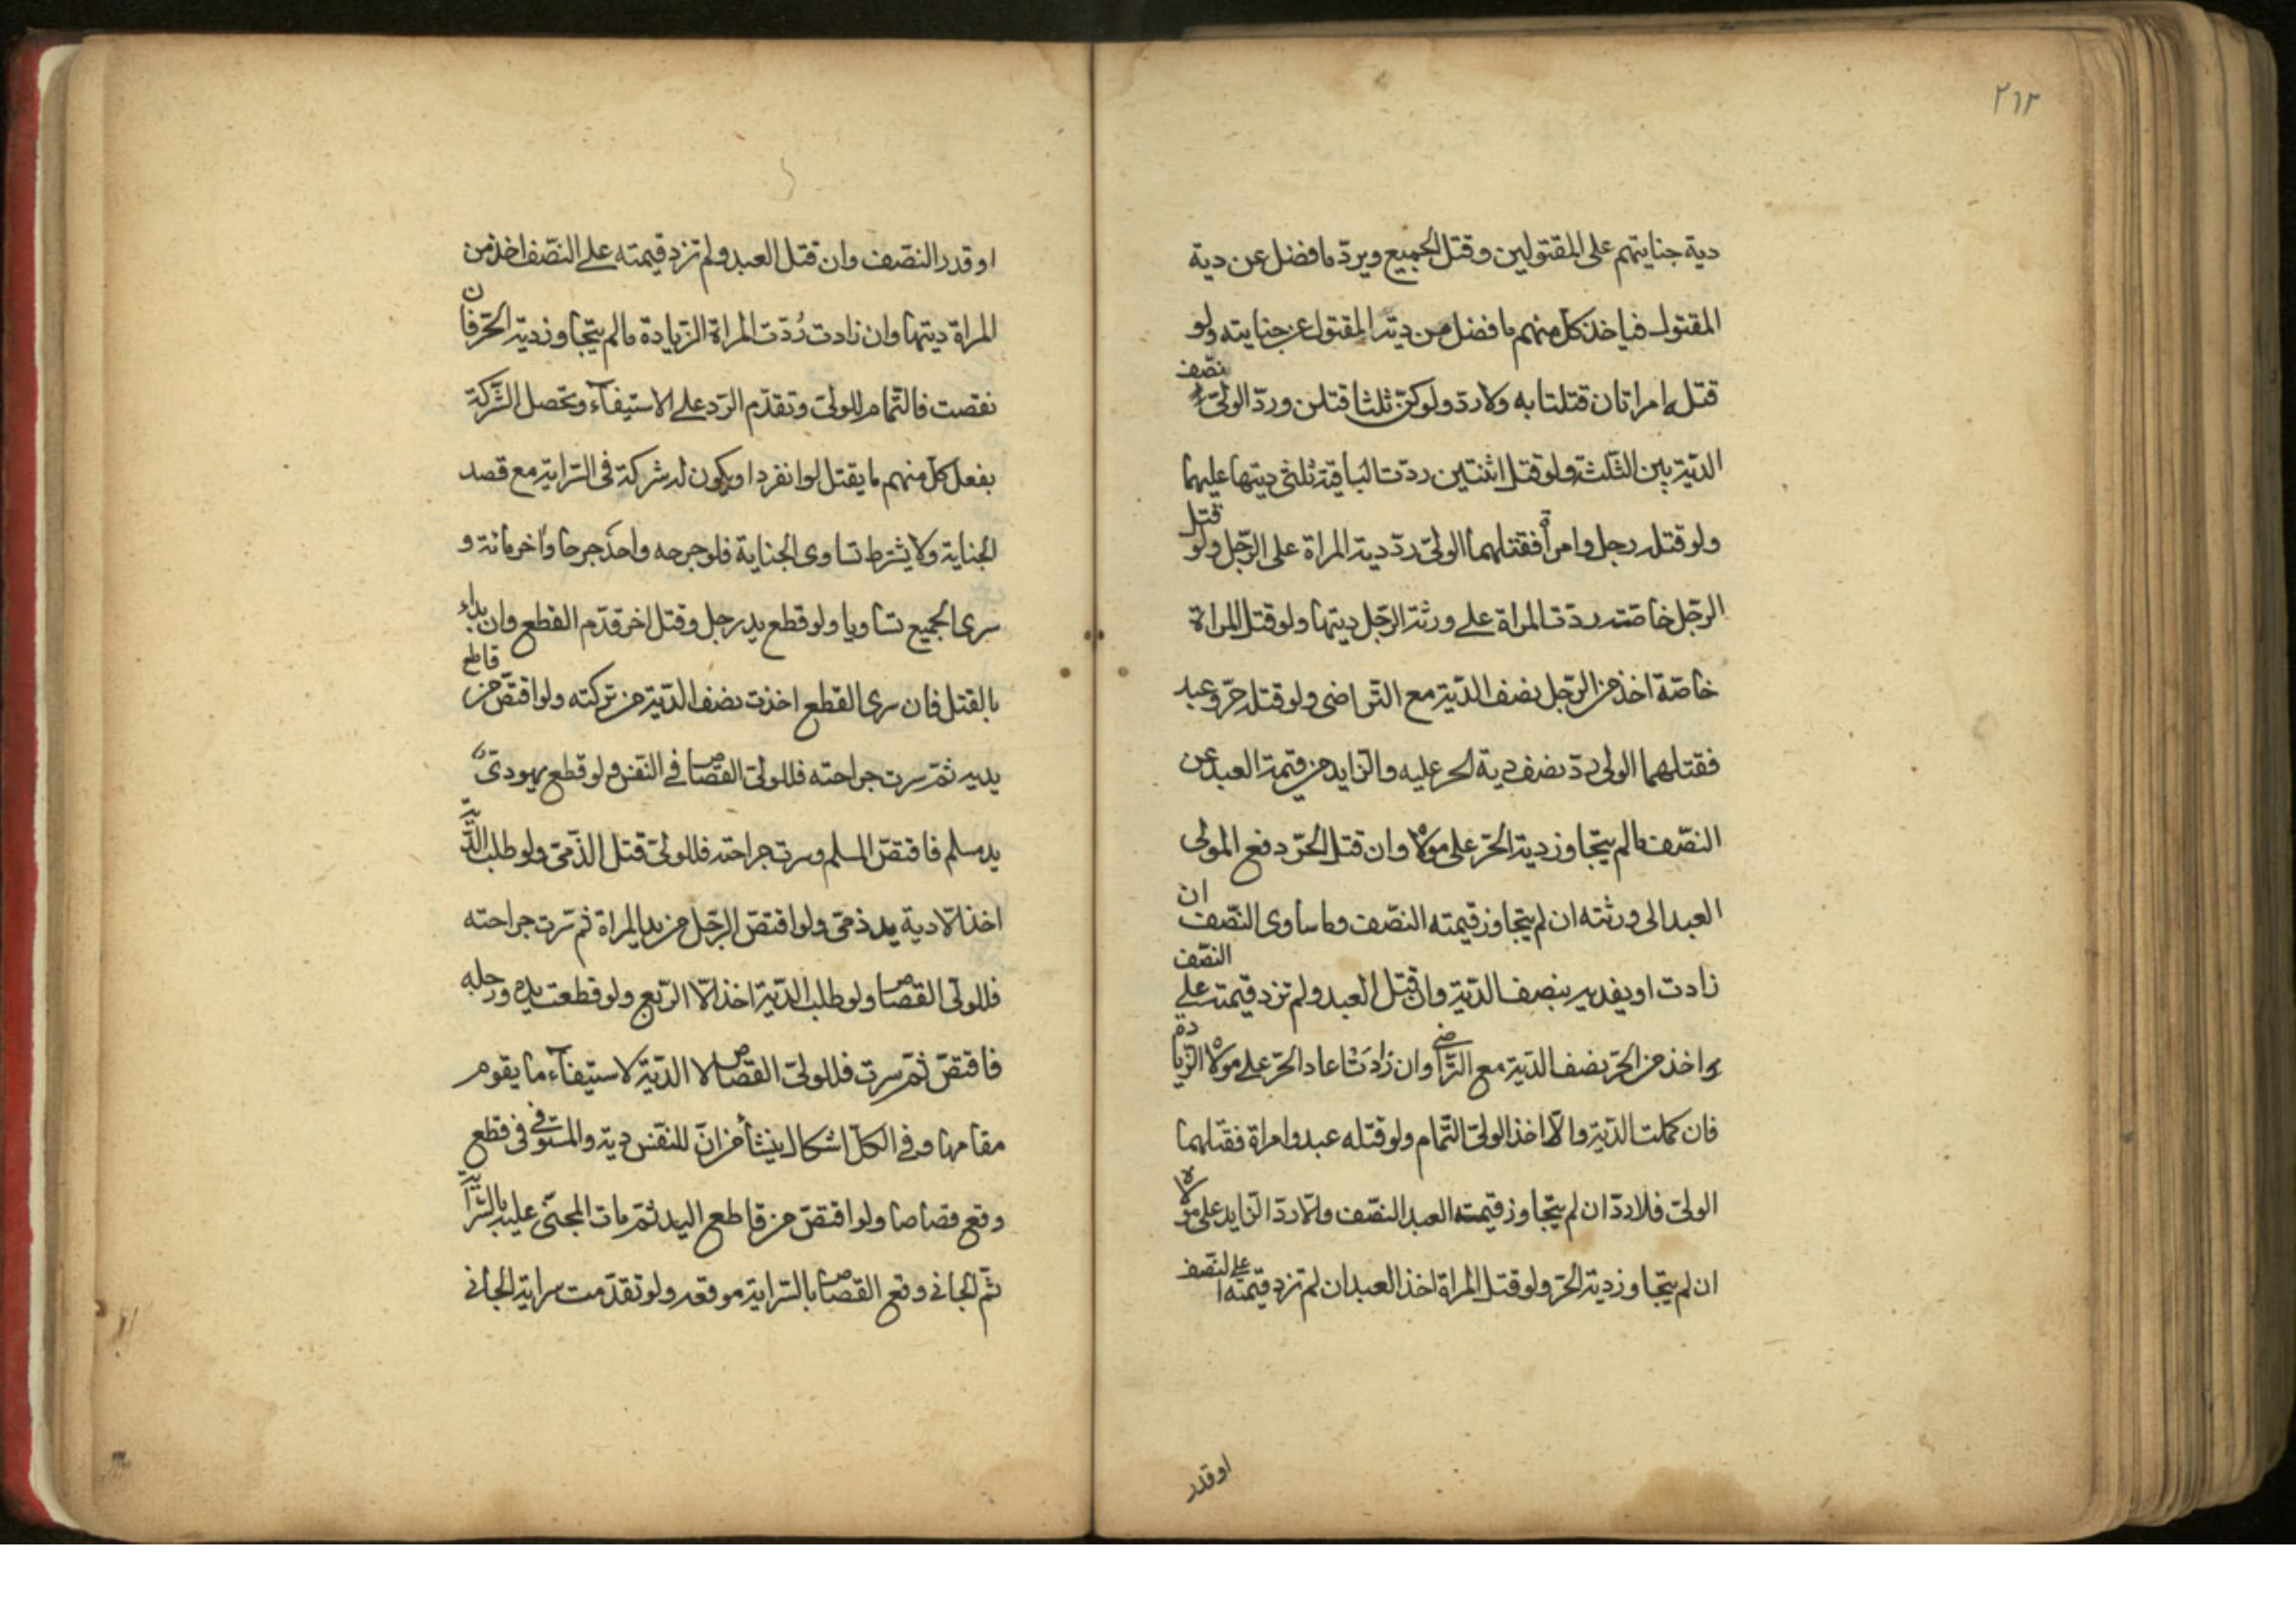 ٢٦٣
دية جنايتهم على المقتولين وقتل الجميع ويردّ ما فضل عن دية
المقتول فياخذ كلّ منهم ما فضل من ديته المقتول عن جنايته ولو
قتله امراتان قتلتا به ولا ردّ ولو كنّ ثلثا قتلن وردّ الولىّ نصف
الديّة بين الثلثة ولو قتل اثنتين ردّت الباقية ثلثى ديتها عليهما
ولو قتله رجل وامرأة فقتلهما الولىّ ردّ دية المراة على الرّجل ولو قتل
الرّجل خاصّة ردّت المراة على ورثة الرّجل ديتها ولو قتل المراة
خاصّة اخذ من الرّجل نصف الديّة مع التّراضى ولو قتله حرّ وعبد
فقتلهما الولى ردّ نصف دية الحر عليه والزايد من قيمة العبد عن
النصّف ما لم يتجاوز دية الحرّ على مولاه وان قتل الحرّ دفع المولى
العبد الى ورثته ان لم يتجاوز قيمته النصّف وما ساوى النصّف ان
زادت او يفديه بنصف الديّة وان قتل العبد ولم تزد قيمته على النصّف
واخذ من الحرّ نصف الديّة مع الترّاضى وان زادت اعاد الحرّ على مولاه الزّيادة
فان كملت الديّة والّا اخذ الولىّ التّمام ولو قتله عبد وامراة فقتلهما
الولىّ فلا ردّ ان لم يتجاوز قيمته العبد النصّف والّا ردّ الزايد على مولاه
ان لم يتجاوز دية الحرّ ولو قتل المراة اخذ العبد ان لم تزد قيمته على النصّف
او قدر
او قدر النصّف وان قتل العبد ولم تزد قيمته على النصّف اخذ من
المراة ديتها وان زادت رُدّت المراة الزّيادة ما لم يتجاوز دية الحرّ فان
نقصت فالتّمام للولىّ وتقدّم الردّ على الاستيفآء وتحصل الشّركة
بفعل كلّ منهم ما يقتل لو انفرد او يكون له شركة فى السّراية مع قصد
الجناية ولا يشترط تساوى الجناية فلو جرحه واحد جرحا وآخر مائة و
سرى الجميع تساويا ولو قطع يد رجل وقتل اخر قدّم القطع وان بداء
بالقتل فان سرى القطع اخذت نصف الديّة من تركته ولو اقتصّ من قاطع
يديه ثمّ سرت جراحته فللولىّ القصاص فى النفس ولو قطع يهودىّ
يد مسلم فاقتصّ المسلم وسرت جراحته فللولىّ قتل الذّمىّ ولو طلب الديّة
اخذ الّا دية يد ذمىّ ولو اقتصّ الرّجل من يد المراة ثم سرت جراحته
فللولىّ القصاص ولو طلب الديّة اخذ الّا الرّبع ولو قطعت يده ورجله
فاقتصّ ثمّ سرت فللولىّ القصاص لا الديّة لاستيفآء ما يقوم
مقامها وفى الكلّ اشكال ينشأ من انّ للنّفس دية والمستوفى فى قطع
وقع قصاصا ولو اقتصّ من قاطع اليد ثمّ مات المجنىّ عليه بالسّراية
ثمّ الجانى وقع القصاص بالسّراية موقعه ولو تقدّمت سراية الجانى